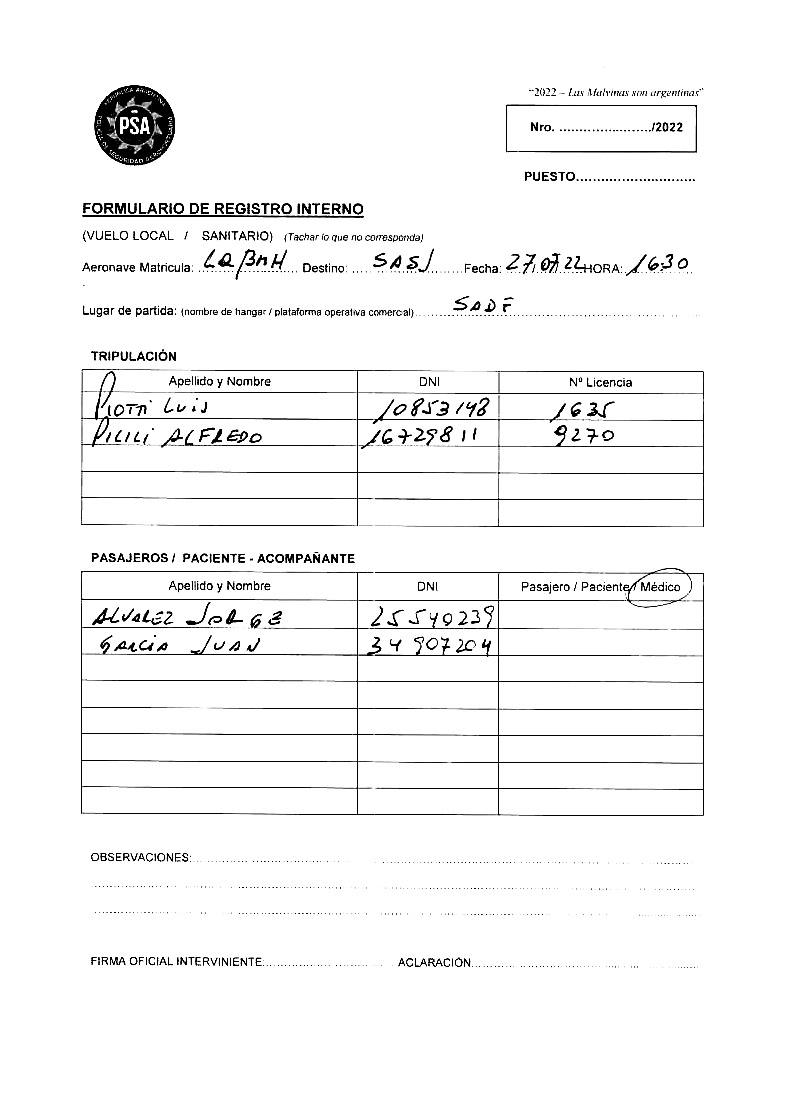 "2022 – Las Malvinas son argentinas"
REPUBLICA ARGENTINA
PSA
POLICIA DE SEGURIDAD AEROPORTUARIA
Nro. ......................./2022
PUESTO............................
FORMULARIO DE REGISTRO INTERNO
(VUELO LOCAL / SANITARIO) (Tachar lo que no corresponda)
Aeronave Matricula: LQBMH Destino: SASJ Fecha: 27/07/22 HORA: 1630
Lugar de partida: (nombre de hangar / plataforma operativa comercial) SADF
TRIPULACIÓN
Apellido y Nombre DNI Nº Licencia
Piotti Luis 10853148 1635
Pilili ALFREDO 16729811 9270
PASAJEROS / PACIENTE - ACOMPAÑANTE
Apellido y Nombre DNI Pasajero / Paciente/ Médico
ALVAREZ JORGE 25540239
GARCIA JUAN 34907204
OBSERVACIONES:
FIRMA OFICIAL INTERVINIENTE: ACLARACIÓN